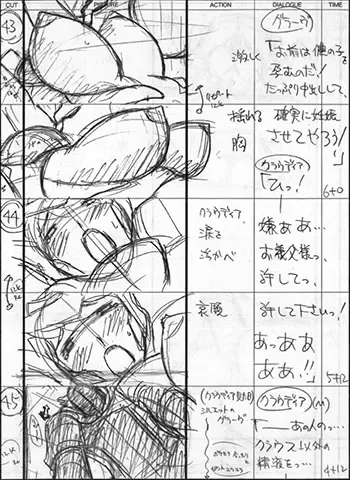 CUT PICTURE ACTION DIALOGUE TIME
43
グラーヴ
激しく
「お前は僕の子を
孕むのだ!
たっぷり中出しして、
リピート
揺れる
胸
確実に妊娠
させてやろう!」
クラウディア
「ひっ!
6+0
44
クラウディア
涙を
浮かべ
嫌ぁぁ…
お義父様っ、
許してっ、
哀願
許して下さいっ!
あっああ
ああ!!」
5+12
45
(クラウディア見た目)
シルエットの
グラーヴ
クラウディア(M)
「──あの人のっ…
クラウス以外の
精液をっ…
4+12